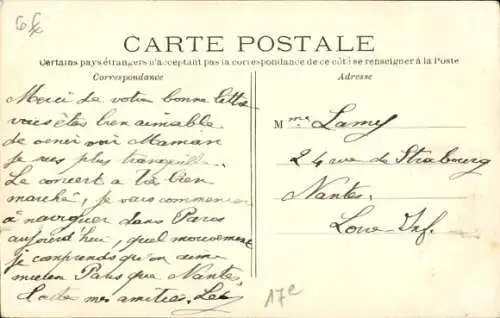 CARTE POSTALE
Certains pays étrangers n'acceptant pas la correspondance de ce côté se renseigner à la Poste
Correspondance
Adresse
Merci de votre bonne lettre
vous êtes bien aimable
de venir voir Maman
je suis plus tranquille.
Le concert a très bien
marché, je vais commencer
à naviguer dans Paris
aujourd'hui, quel mouvement
je comprends qu'on aime
mieux Paris que Nantes.
mes amitiés.
Mme Lamy
24 rue de Strasbourg
Nantes
Loire-Inf.
17e